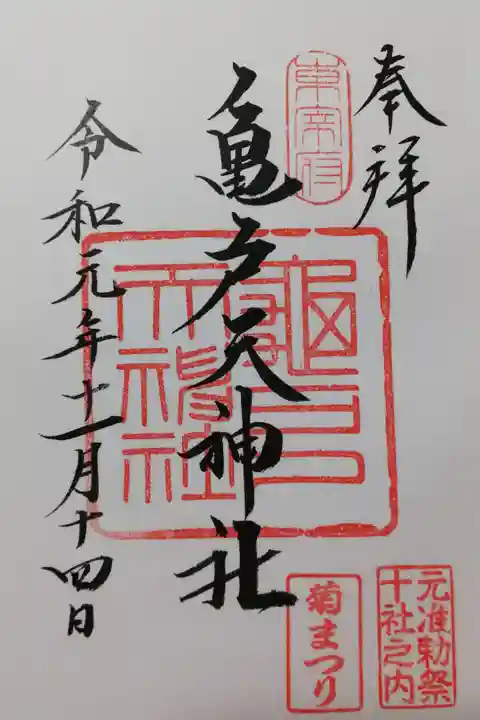 奉拝
東宰府
亀戸天神社
亀戸天神社
令和元年十一月十四日
元准勅祭
十社之内
菊まつり